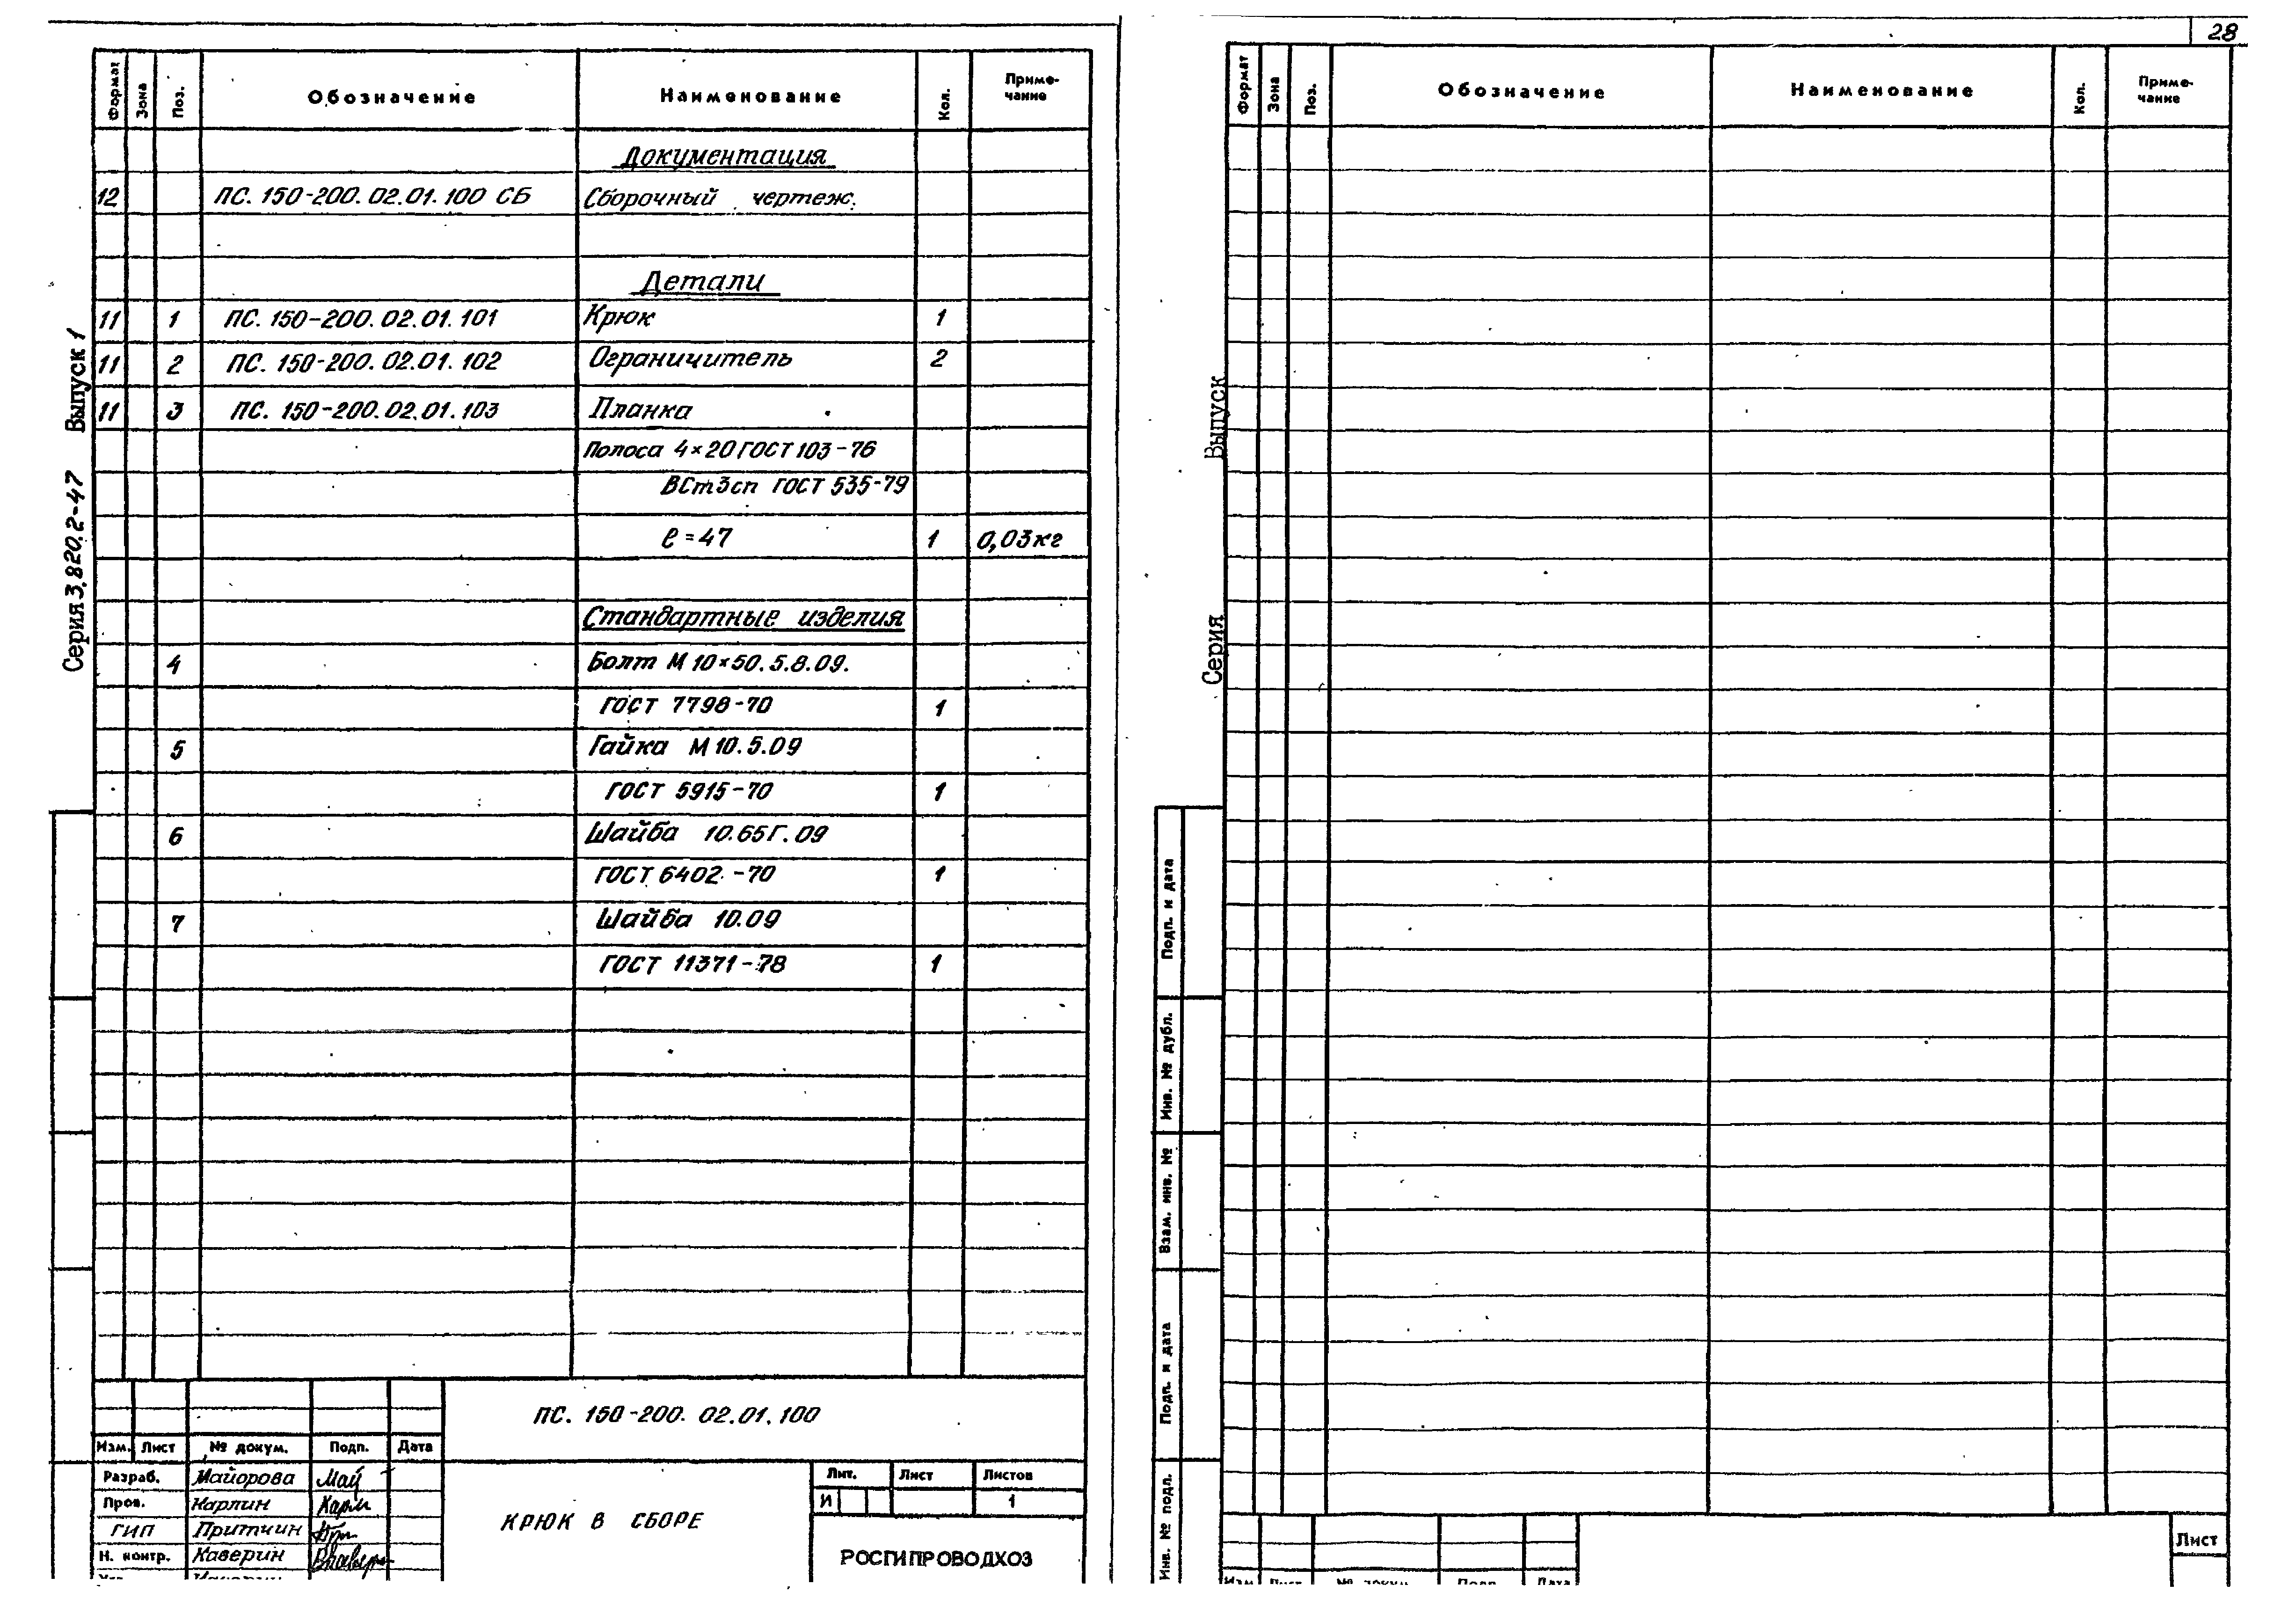 28
Формат Зона Поз. Обозначение Наименование Кол. Приме-
чание
Документация
12 ПС. 150-200.02.01.100 СБ Сборочный чертеж.
Детали
11 1 ПС. 150-200.02.01.101 Крюк 1
11 2 ПС. 150-200.02.01.102 Ограничитель 2
11 3 ПС. 150-200.02.01.103 Планка
Полоса 4×20 ГОСТ 103-76
ВСт3сп ГОСТ 535-79
ℓ=47 1 0,03кг
Стандартные изделия
4 Болт М10×50.5.8.09.
ГОСТ 7798-70 1
5 Гайка М10.5.09
ГОСТ 5915-70 1
6 Шайба 10.65Г.09
ГОСТ 6402-70 1
7 Шайба 10.09
ГОСТ 11371-78 1
Серия 3.820.2-47 Выпуск 1
ПС. 150-200.02.01.100
Изм. Лист № докум. Подп. Дата
Разраб. Майорова Май
Пров. Карлин Карл
ГИП Притчин
Н. контр. Каверин
КРЮК В СБОРЕ
Лит. Лист Листов
И 1
РОСГИПРОВОДХОЗ
Формат Зона Поз. Обозначение Наименование Кол. Приме-
чание
Серия Выпуск
Подп. и дата
Инв. № дубл.
Взам. инв. №
Подп. и дата
Инв. № подл.
Изм Лист № докум Подп Дата
Лист